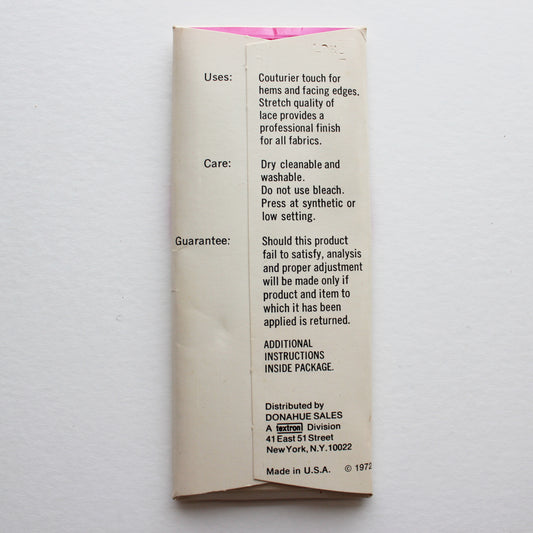 Uses: Couturier touch for
hems and facing edges.
Stretch quality of
lace provides a
professional finish
for all fabrics.
Care: Dry cleanable and
washable.
Do not use bleach.
Press at synthetic or
low setting.
Guarantee: Should this product
fail to satisfy, analysis
and proper adjustment
will be made only if
product and item to
which it has been
applied is returned.
ADDITIONAL
INSTRUCTIONS
INSIDE PACKAGE.
Distributed by
DONAHUE SALES
A textron Division
41 East 51 Street
New York, N.Y. 10022
Made in U.S.A. © 1972